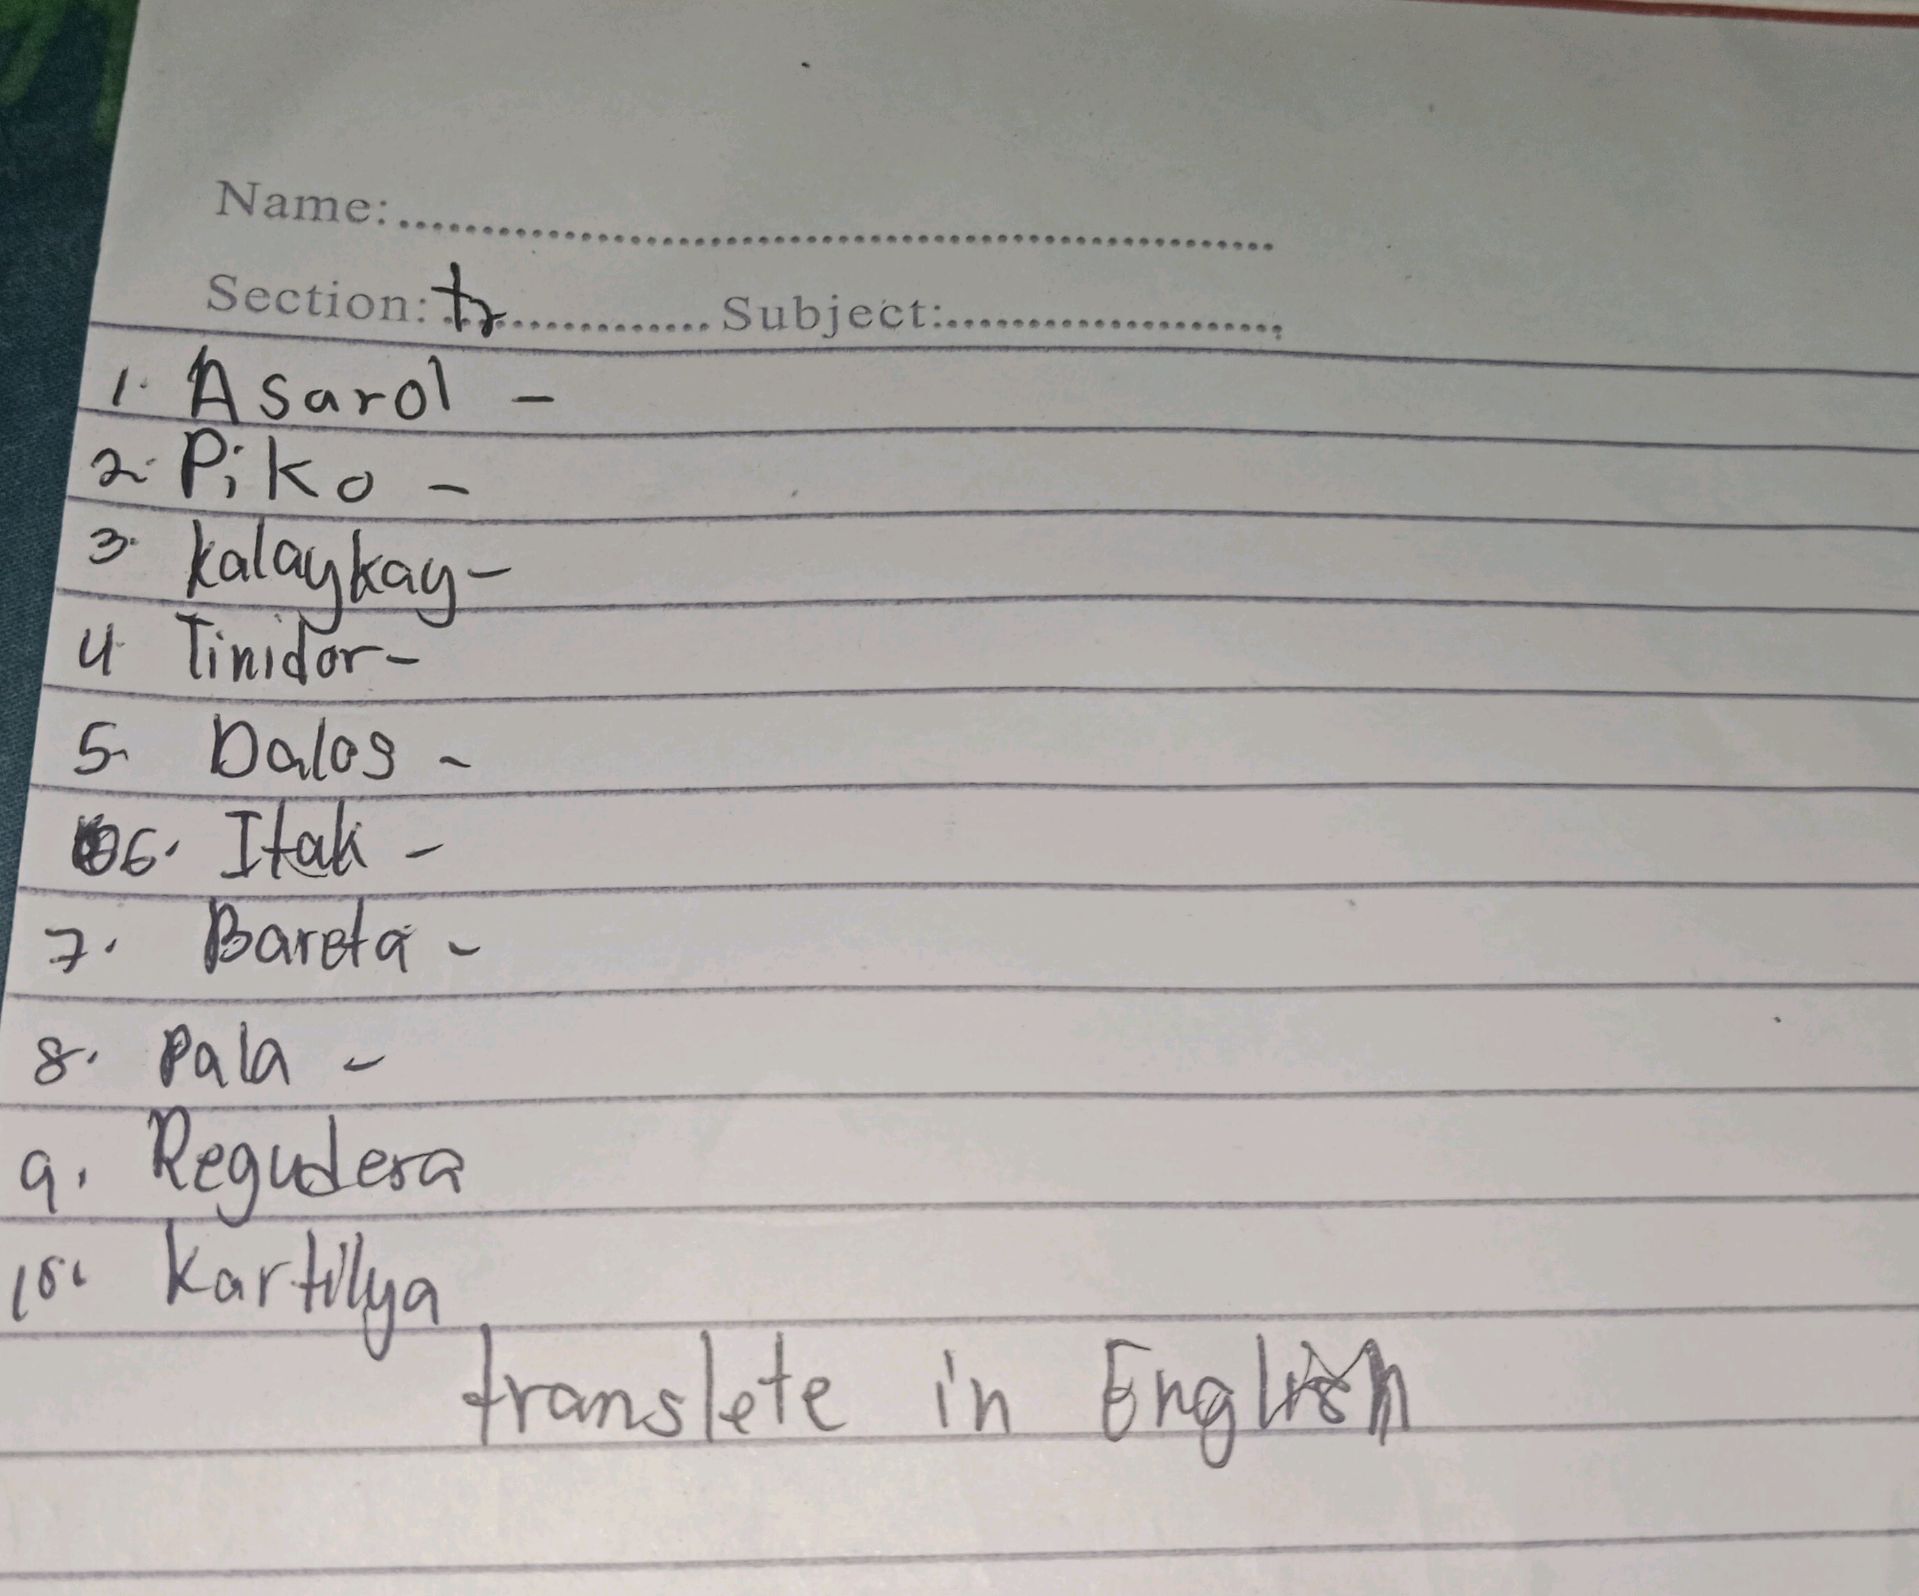 Name:
Section: tr Subject:
1. Asarol -
2. Piko -
3. kalaykay -
4 Tinidor -
5. Dalos -
6. Itak -
7. Bareta -
8. Pala -
9. Regudera
10. Kartilya
translete in English